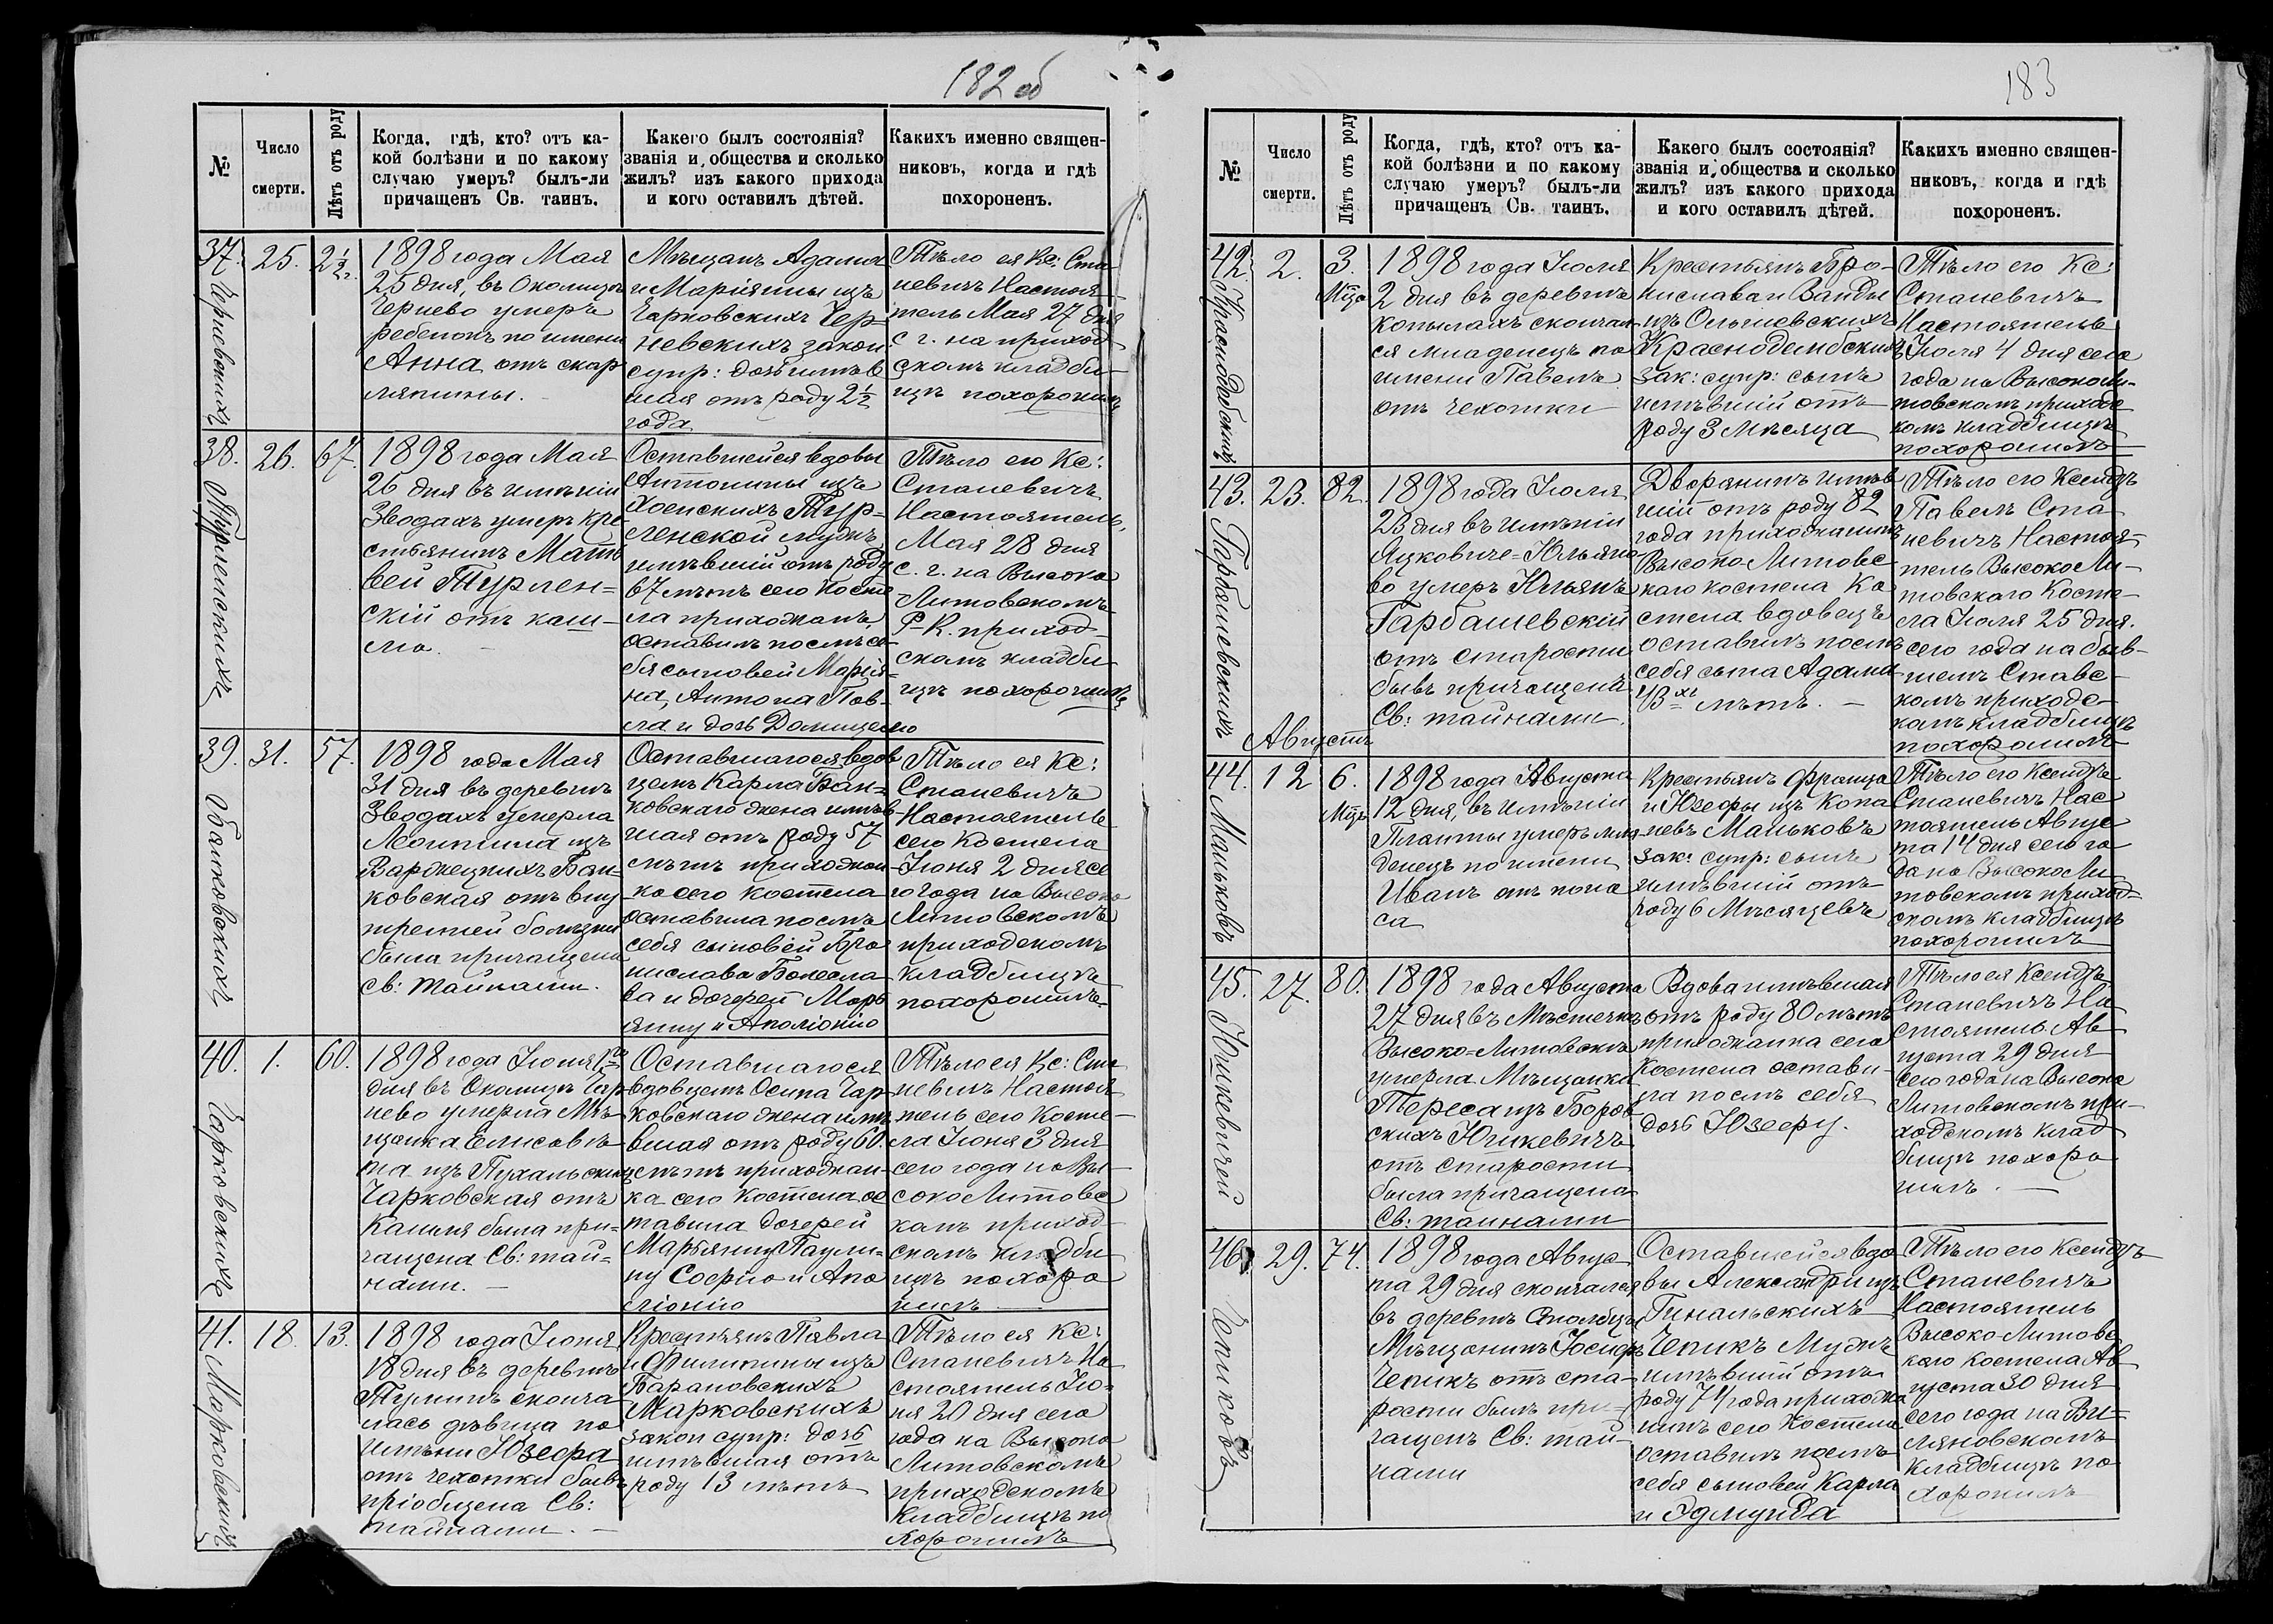 182 об
№
Число
смерти.
Лѣтъ отъ роду
Когда, гдѣ, кто? отъ ка-
кой болѣзни и по какому
случаю умеръ? былъ-ли
причащенъ Св. таинъ.
Какего былъ состоянія?
званія и общества и сколько
жилъ? изъ какого прихода
и кого оставилъ дѣтей.
Какихъ именно священ-
никовъ, когда и гдѣ
похороненъ.
37.
Черневскихъ
25.
2½
1898 года Мая
25 дня, въ Околицѣ
Чернево умеръ
ребенокъ по имени
Анна отъ скар
лятины.
Мѣщанъ Адама
и Маріянны изъ
Чарковскихъ Чер-
невскихъ закон:
супр: дочь имѣв
шая отъ роду 2½
года
Тѣло ея Кс: Ста
невичъ Настоя
тель Мая 27 дня
с. г. на приход
скомъ кладби-
щѣ похоронилъ
38.
Турленскихъ
26.
67.
1898 года Мая
26 дня въ имѣніи
Зводахъ умеръ кре
стьянинъ Матѳ
вей Турлен-
скій отъ каш-
лю.
Оставшейся вдовы
Антонины изъ
Хоенскихъ Тур-
ленской мужъ,
имѣвшій отъ роду
67 лѣтъ сего Косте
ла прихожанъ,
оставилъ послѣ се-
бя сыновей Марія-
на, Антона Пав-
ла и дочь Домицелю
Тѣло его Кс:
Станевичъ
Настоятель,
Мая 28 дня
с. г. на Высоко
Литовскомъ
Р-К. приход-
скомъ кладби
щѣ похоронилъ
39.
Банковскихъ
31.
57.
1898 года Мая
31 дня въ деревнѣ
Зводахъ умерла
Леонтина изъ
Варжецкихъ Бан-
ковская отъ вну
тренней болѣзни
была причащена
Св: Тайнами.
Оставшагося вдов
цемъ Карла Бан-
ковскаго жена имѣв
шая отъ роду 57
лѣтъ прихожан
ка сего костела
оставила послѣ
себя сыновей Бро
нислава Болесла
ва и дочерей Марь
янну и Аполіонію
Тѣло ея Кс:
Станевичъ
Настоятель
сего Костела
Іюня 2 дня се
го года на Высоко
Литовскомъ
приходскомъ
кладбищѣ
похоронилъ
40.
Чарковскихъ
1.
60.
1898 года Іюня 1го
дня въ Околицѣ Чер
нево умерла Мѣ-
щанка Елисаве-
та изъ Пухальскихъ
Чарковская отъ
Кашля была при-
чащена Св: тай-
нами.
Оставшагося
вдовцемъ Осипа Чар
ковскаго жена имѣ
вшая отъ роду 60.
лѣтъ прихожан-
ка сего Костела ос
тавила дочерей
Марьянну Паули-
ну Софію и Апо
ліонію
Тѣло ея Кс: Ста
невичъ Настоя
тель сего Косте-
ла Іюня 3 дня
сего года на Вы-
соко Литовс
комъ приход-
скомъ кладби
щѣ похоро
нилъ
41.
Марковскихъ
18.
13.
1898 года Іюня
18 дня въ деревнѣ
Туминъ сконча
лась дѣвица по
имени Юзефа
отъ чехотки бывъ
пріобщена Св:
тайнами.
Крестьянъ Павла
и Филипины изъ
Барановскихъ
Марковскихъ
закон супр: дочь
имѣвшая отъ
роду 13 лѣтъ
Тѣло ея Кс:
Станевичъ На
стоятель Ію-
ня 20 дня сего
года на Высоко
Литовскомъ
приходскомъ
кладбищѣ по
хоронилъ
183
№
Число
смерти.
Лѣтъ отъ роду
Когда, гдѣ, кто? отъ ка-
кой болѣзни и по какому
случаю умеръ? былъ-ли
причащенъ Св. таинъ.
Какего былъ состоянія?
званія и общества и сколько
жилъ? изъ какого прихода
и кого оставилъ дѣтей.
Какихъ именно священ-
никовъ, когда и гдѣ
похороненъ.
42.
2.
3.
Мця
1898 года Іюля
2 дня въ деревнѣ
Копылахъ скончал-
ся младенецъ по
имени Павелъ
отъ чехотки
Крестьянъ Бро-
нислава и Ванды
изъ Ольшевскихъ
Краснодембскихъ
зак: супр: сынъ
имѣвшій отъ
роду 3 Мѣсяца
Тѣло его Кс:
Станевичъ
Настоятель
Іюля 4 дня сего
года на Высоко Ли-
товскомъ приходс
комъ кладбищѣ
похоронилъ
43.
Гарбашевскихъ
23.
82.
1898 года Іюля
23 дня въ имѣніи
Яцковиче-Юльяно
во умеръ Юльянъ
Гарбашевскій
отъ старости
бывъ причащенъ
Св: тайнами.
Дворянинъ имѣв
шій отъ роду 82
года прихожанинъ
Высоко-Литовс
каго костела Ко
стела вдовецъ
оставилъ послѣ
себя сына Адама
43хъ лѣтъ.
Тѣло его Ксендзъ
Павелъ Ста
невичъ Настоя-
тель Высоко Ли-
товскаго Косте-
ла Іюля 25 дня.
сего года на быв-
шемъ Ставс-
комъ приходс-
комъ кладбищѣ
похоронилъ
Августъ
44.
Маньковъ
12
6.
Мцъ
1898 года Августа
12 дня, въ имѣніи
Планты умеръ мла-
денецъ по имени
Иванъ отъ поно
са
Крестьянъ Франца
и Юзефы изъ Копа
чевъ Маньковъ
зак: супр: сынъ
имѣвшій отъ
роду 6 Мѣсяцевъ
Тѣло его Ксендзъ
Станевичъ Нас
тоятель Авгус
та 14 дня сего го
да на Высоко Ли
товскомъ приход-
скомъ кладбищѣ
похоронилъ
45.
Юшкевичей
27.
80.
1898 года Августа
27 дня въ Мѣстечкѣ
Высоко-Литовскѣ
умерла Мѣщанка
Тереса изъ Боров
скихъ Юшкевичъ
отъ старости
была причащена
Св: тайнами
Вдова имѣвшая
отъ роду 80 лѣтъ
прихожанка сего
Костела остави-
ла послѣ себя
дочь Юзефу.
Тѣло ея Ксендзъ
Станевичъ На
стоятель Ав
густа 29 дня
сего года на Высоко
Литовскомъ при-
ходскомъ клад
бищѣ похоро
нилъ.
46.
Чепиковъ
29.
74.
1898 года Авгус
та 29 дня скончался
въ деревнѣ Столбцы
Мѣщанинъ Іосифъ
Чепикъ отъ ста-
рости былъ при-
чащенъ Св: тай-
нами
Оставшейся вдо
вы Александри изъ
Чепикъ Мужъ
имѣвшій отъ
роду 74 года прихожа
нинъ сего Костела
оставилъ послѣ
себя сыновей Карла
и Эдмунда
Тѣло его Ксендзъ
Станевичъ
Настоятель
Высоко-Литовс
каго Костела Ав
густа 30 дня
сего года на Ви-
ляновскомъ
кладбищѣ по
хоронилъ